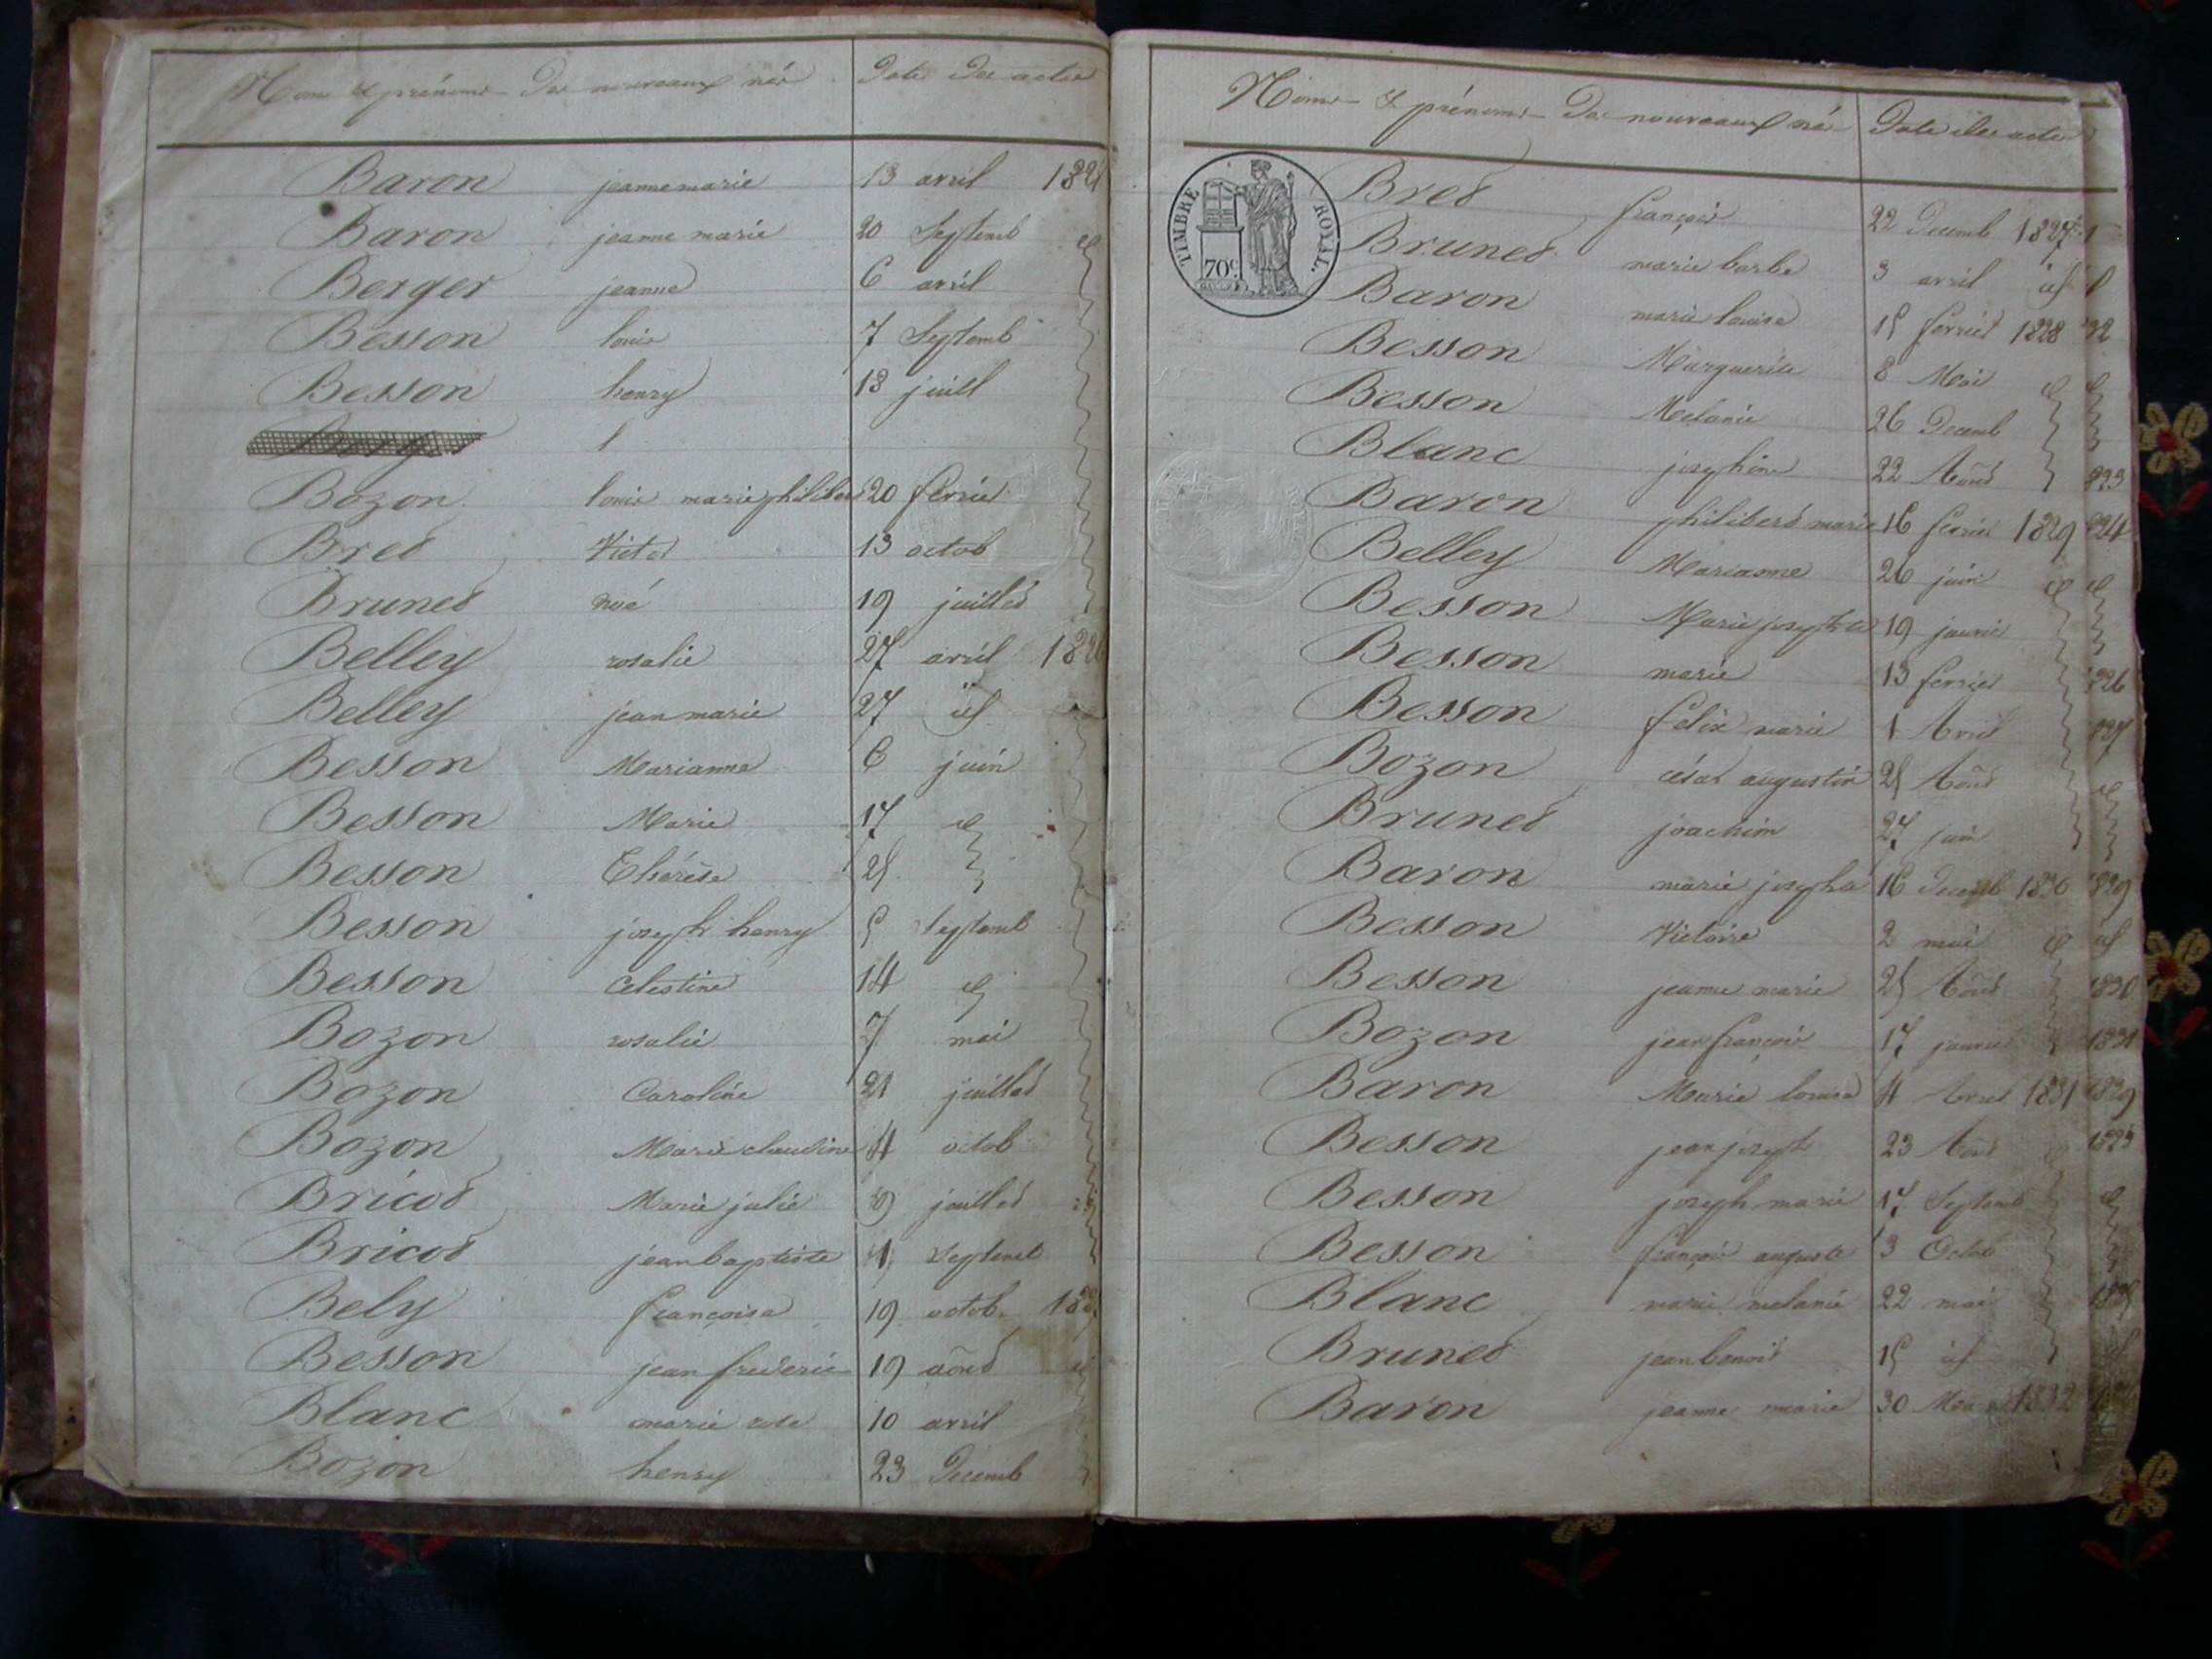 Noms & prénoms Des nouveaux nés Date des actes
Baron jeanne marie 13 avril
Baron jeanne marie 20 Septemb id
Berger jeanne 6 avril
Besson louis 7 Septemb
Besson henry 13 juill
Bozon louis marie philibert 20 fevrier
Bret Victor 13 octob
Brunet noé 19 juillet
Belley rosalie 27 avril
Belley jean marie 27 id
Besson Marianne 6 juin
Besson Marie 17 id
Besson Thérèse 25
Besson joseph henry 5 Septemb
Besson Celestine 14 id
Bozon rosalie 7 mai
Bozon Caroline 21 juillet
Bozon Marie claudine 4 octob
Bricot Marie julie juillet
Bricot jean baptiste Septemb
Bely françoise 19 octob.
Besson jean frederic 19 aout id
Blanc marie rose 10 avril
Bozon henry 23 Decemb
Noms & prénoms Des nouveaux nés Date des actes
TIMBRE ROYAL.
70c.
Bret françois 22 Decemb 1827
Brunet marie barbe 3 avril id
Baron marie louise 15 fevrier 1828
Besson Marguerite 8 Mai id
Besson Melanie 26 Decemb
Blanc josephine 22 Aout
Baron philibert marie 16 fevrier 1829
Belley Marianne 26 juin id
Besson Marie josephte 19 janvier
Besson marie 13 fevrier
Besson felix marie 1 Avril
Bozon césar augustin 25 Aout
Brunet joachim 27 juin
Baron marie josephte 16 Decemb 1830
Besson Victoire 2 mai id
Besson jeanne marie 25 Aout
Bozon jean françois 17 janvier
Baron Marie louise 4 Avril 1831
Besson jean joseph 23 Aout
Besson joseph marie 17 Septemb
Besson françois auguste 3 Octob
Blanc marie melanie 22 mai
Brunet jean benoit 15 id
Baron jeanne marie 30 1832